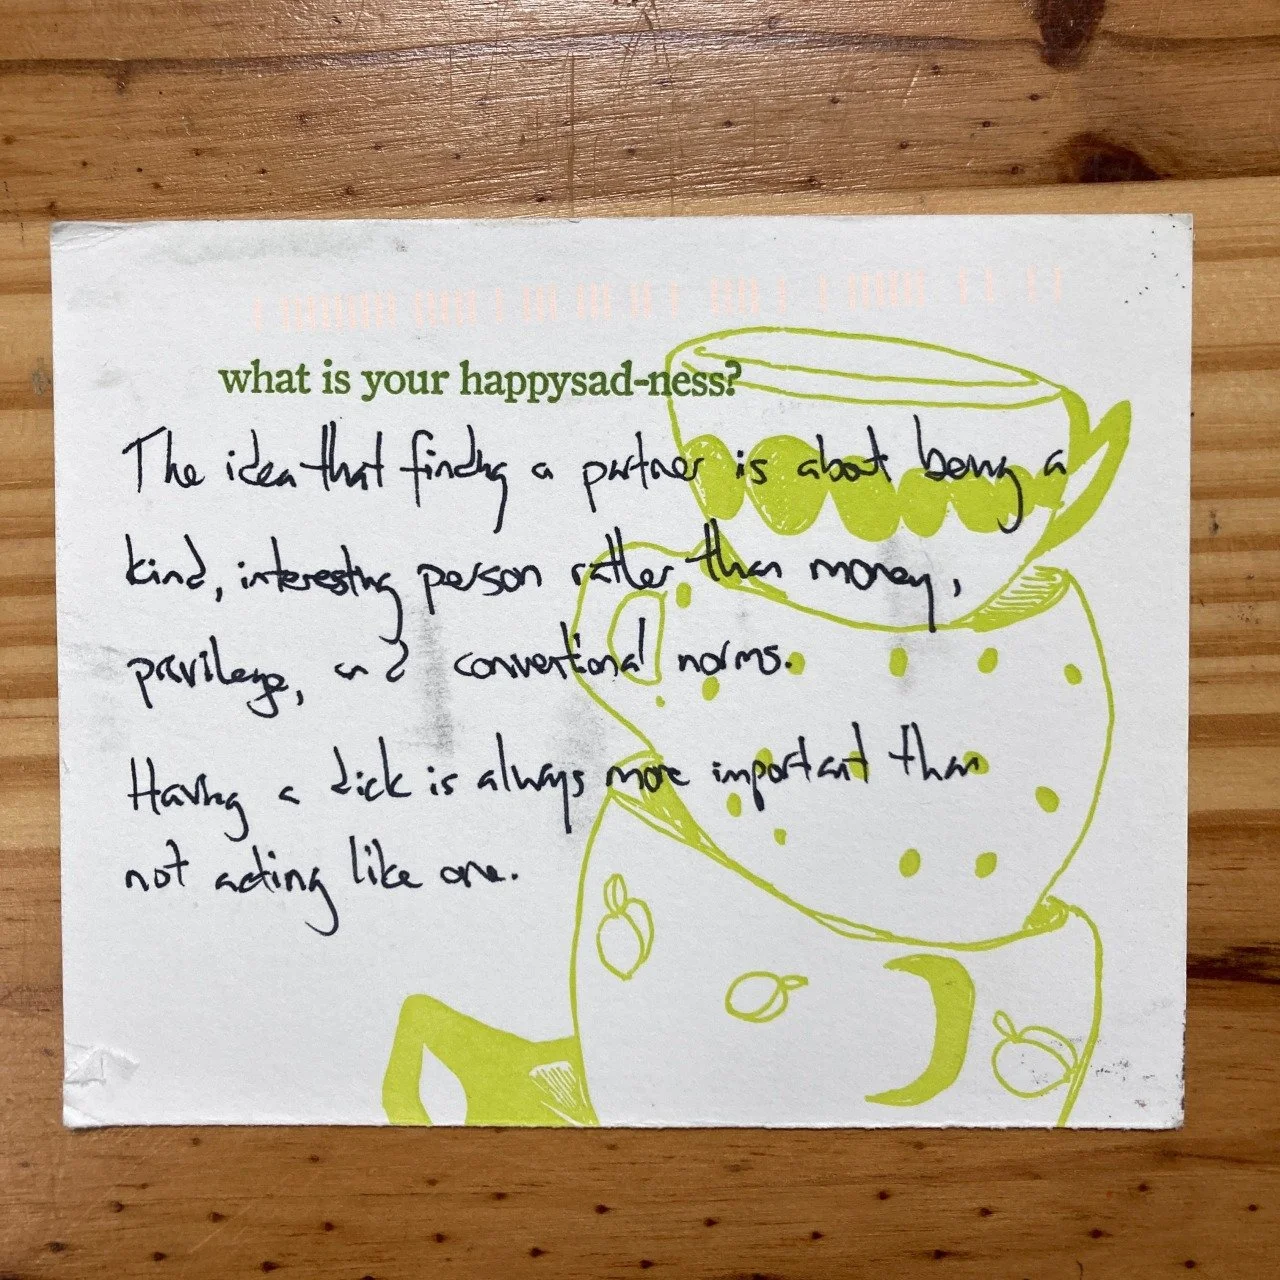 what is your happysad-ness?
The idea that finding a partner is about being a
kind, interesting person rather than money,
privilege, and conventional norms.
Having a dick is always more important than
not acting like one.